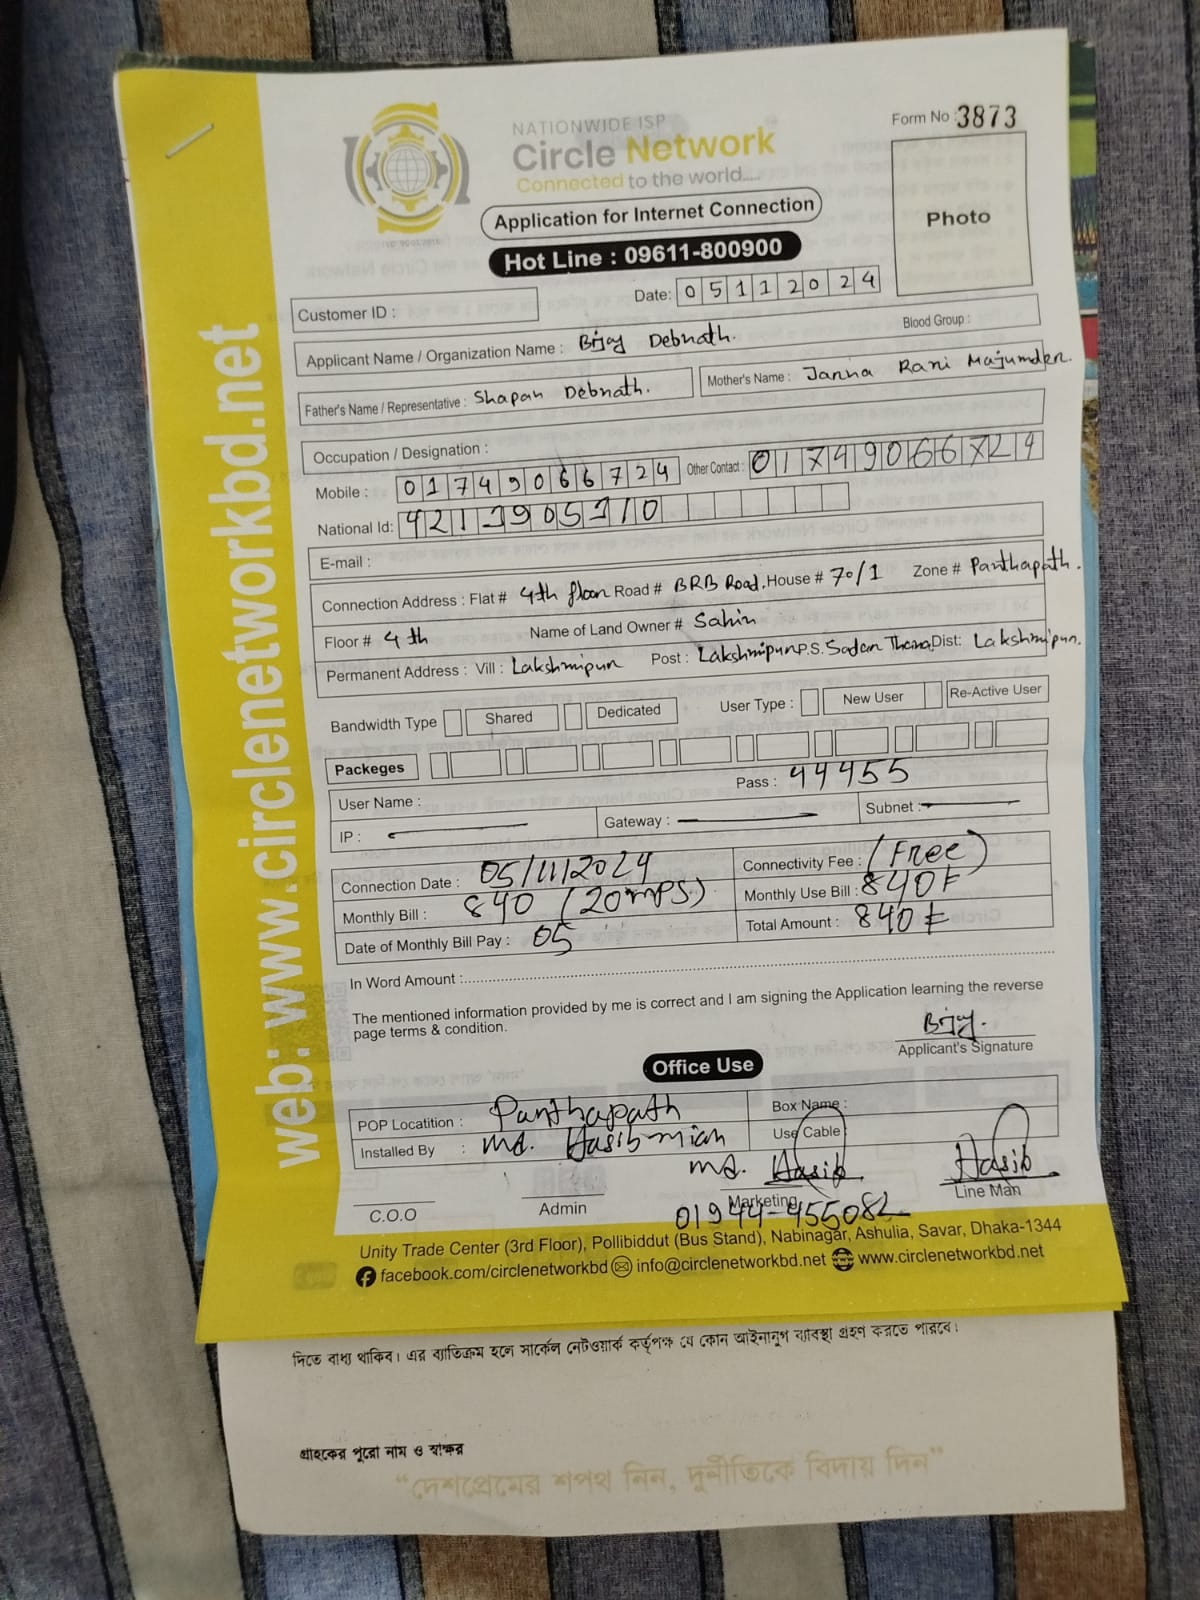 NATIONWIDE ISP
Circle Network
Connected to the world.....
Form No : 3873
Photo
Application for Internet Connection
Hot Line : 09611-800900
Date: 05112024
Customer ID :
Blood Group :
Applicant Name / Organization Name : Bijoy Debnath.
Father's Name / Representative : Shapan Debnath. Mother's Name : Janna Rani Majumder.
Occupation / Designation :
Mobile : 01749066724 Other Contact : 01749066724
National Id: 4211905110
E-mail :
Connection Address : Flat # 4th floor Road # BRB Road. House # 70/1 Zone # Panthapath.
Floor # 4th Name of Land Owner # Sahin
Permanent Address : Vill : Lakshmipur Post : Lakshmipur P.S. Sadar Thana, Dist: Lakshmipur.
Bandwidth Type Shared Dedicated User Type : New User Re-Active User
Packeges
User Name : Pass : 44455
IP : Gateway : Subnet :
Connection Date : 05/11/2024 Connectivity Fee : (Free)
Monthly Bill : 840 (20mPS) Monthly Use Bill : 840৳
Date of Monthly Bill Pay : 05 Total Amount : 840৳
In Word Amount :
The mentioned information provided by me is correct and I am signing the Application learning the reverse
page terms & condition.
Bijoy.
Applicant's Signature
Office Use
POP Locatition : Panthapath Box Name :
Installed By : Md. Hasib miah Use Cable
Md. Hasib Hasib
C.O.O Admin Marketing Line Man
01944-455082
Unity Trade Center (3rd Floor), Pollibiddut (Bus Stand), Nabinagar, Ashulia, Savar, Dhaka-1344
facebook.com/circlenetworkbd info@circlenetworkbd.net www.circlenetworkbd.net
web: www.circlenetworkbd.net
দিতে বাধ্য থাকিব। এর ব্যতিক্রম হলে সার্কেল নেটওয়ার্ক কর্তৃপক্ষ যে কোন আইনানুগ ব্যাবস্থা গ্রহণ করতে পারবে।
গ্রাহকের পুরো নাম ও স্বাক্ষর
“দেশপ্রেমের শপথ নিন, দুর্নীতিকে বিদায় দিন”